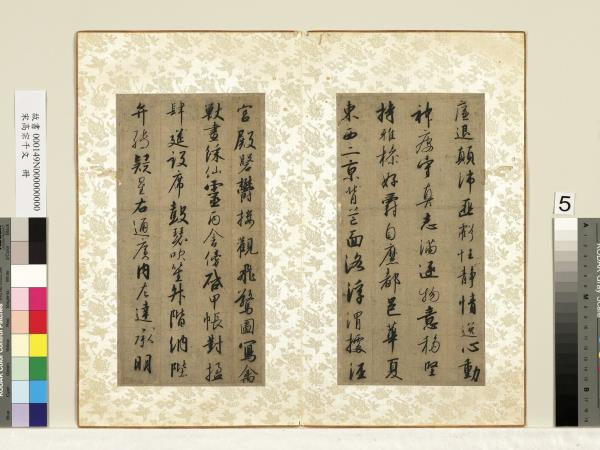 廉退顛沛匪虧性靜情逸心動
神疲守真志滿逐物意移堅
持雅操好爵自縻都邑華夏
東西二京背芒面洛浮渭據涇
宮殿盤鬱樓觀飛驚圖寫禽
獸畫綵仙靈丙舍傍啟甲帳對楹
肆筵設席鼓瑟吹笙升階納陛
弁轉疑星右通廣內左達承明
故書 000149N000000000
宋高宗千文 冊
5
KODAK Color Control Patches
KODAK Gray Scale